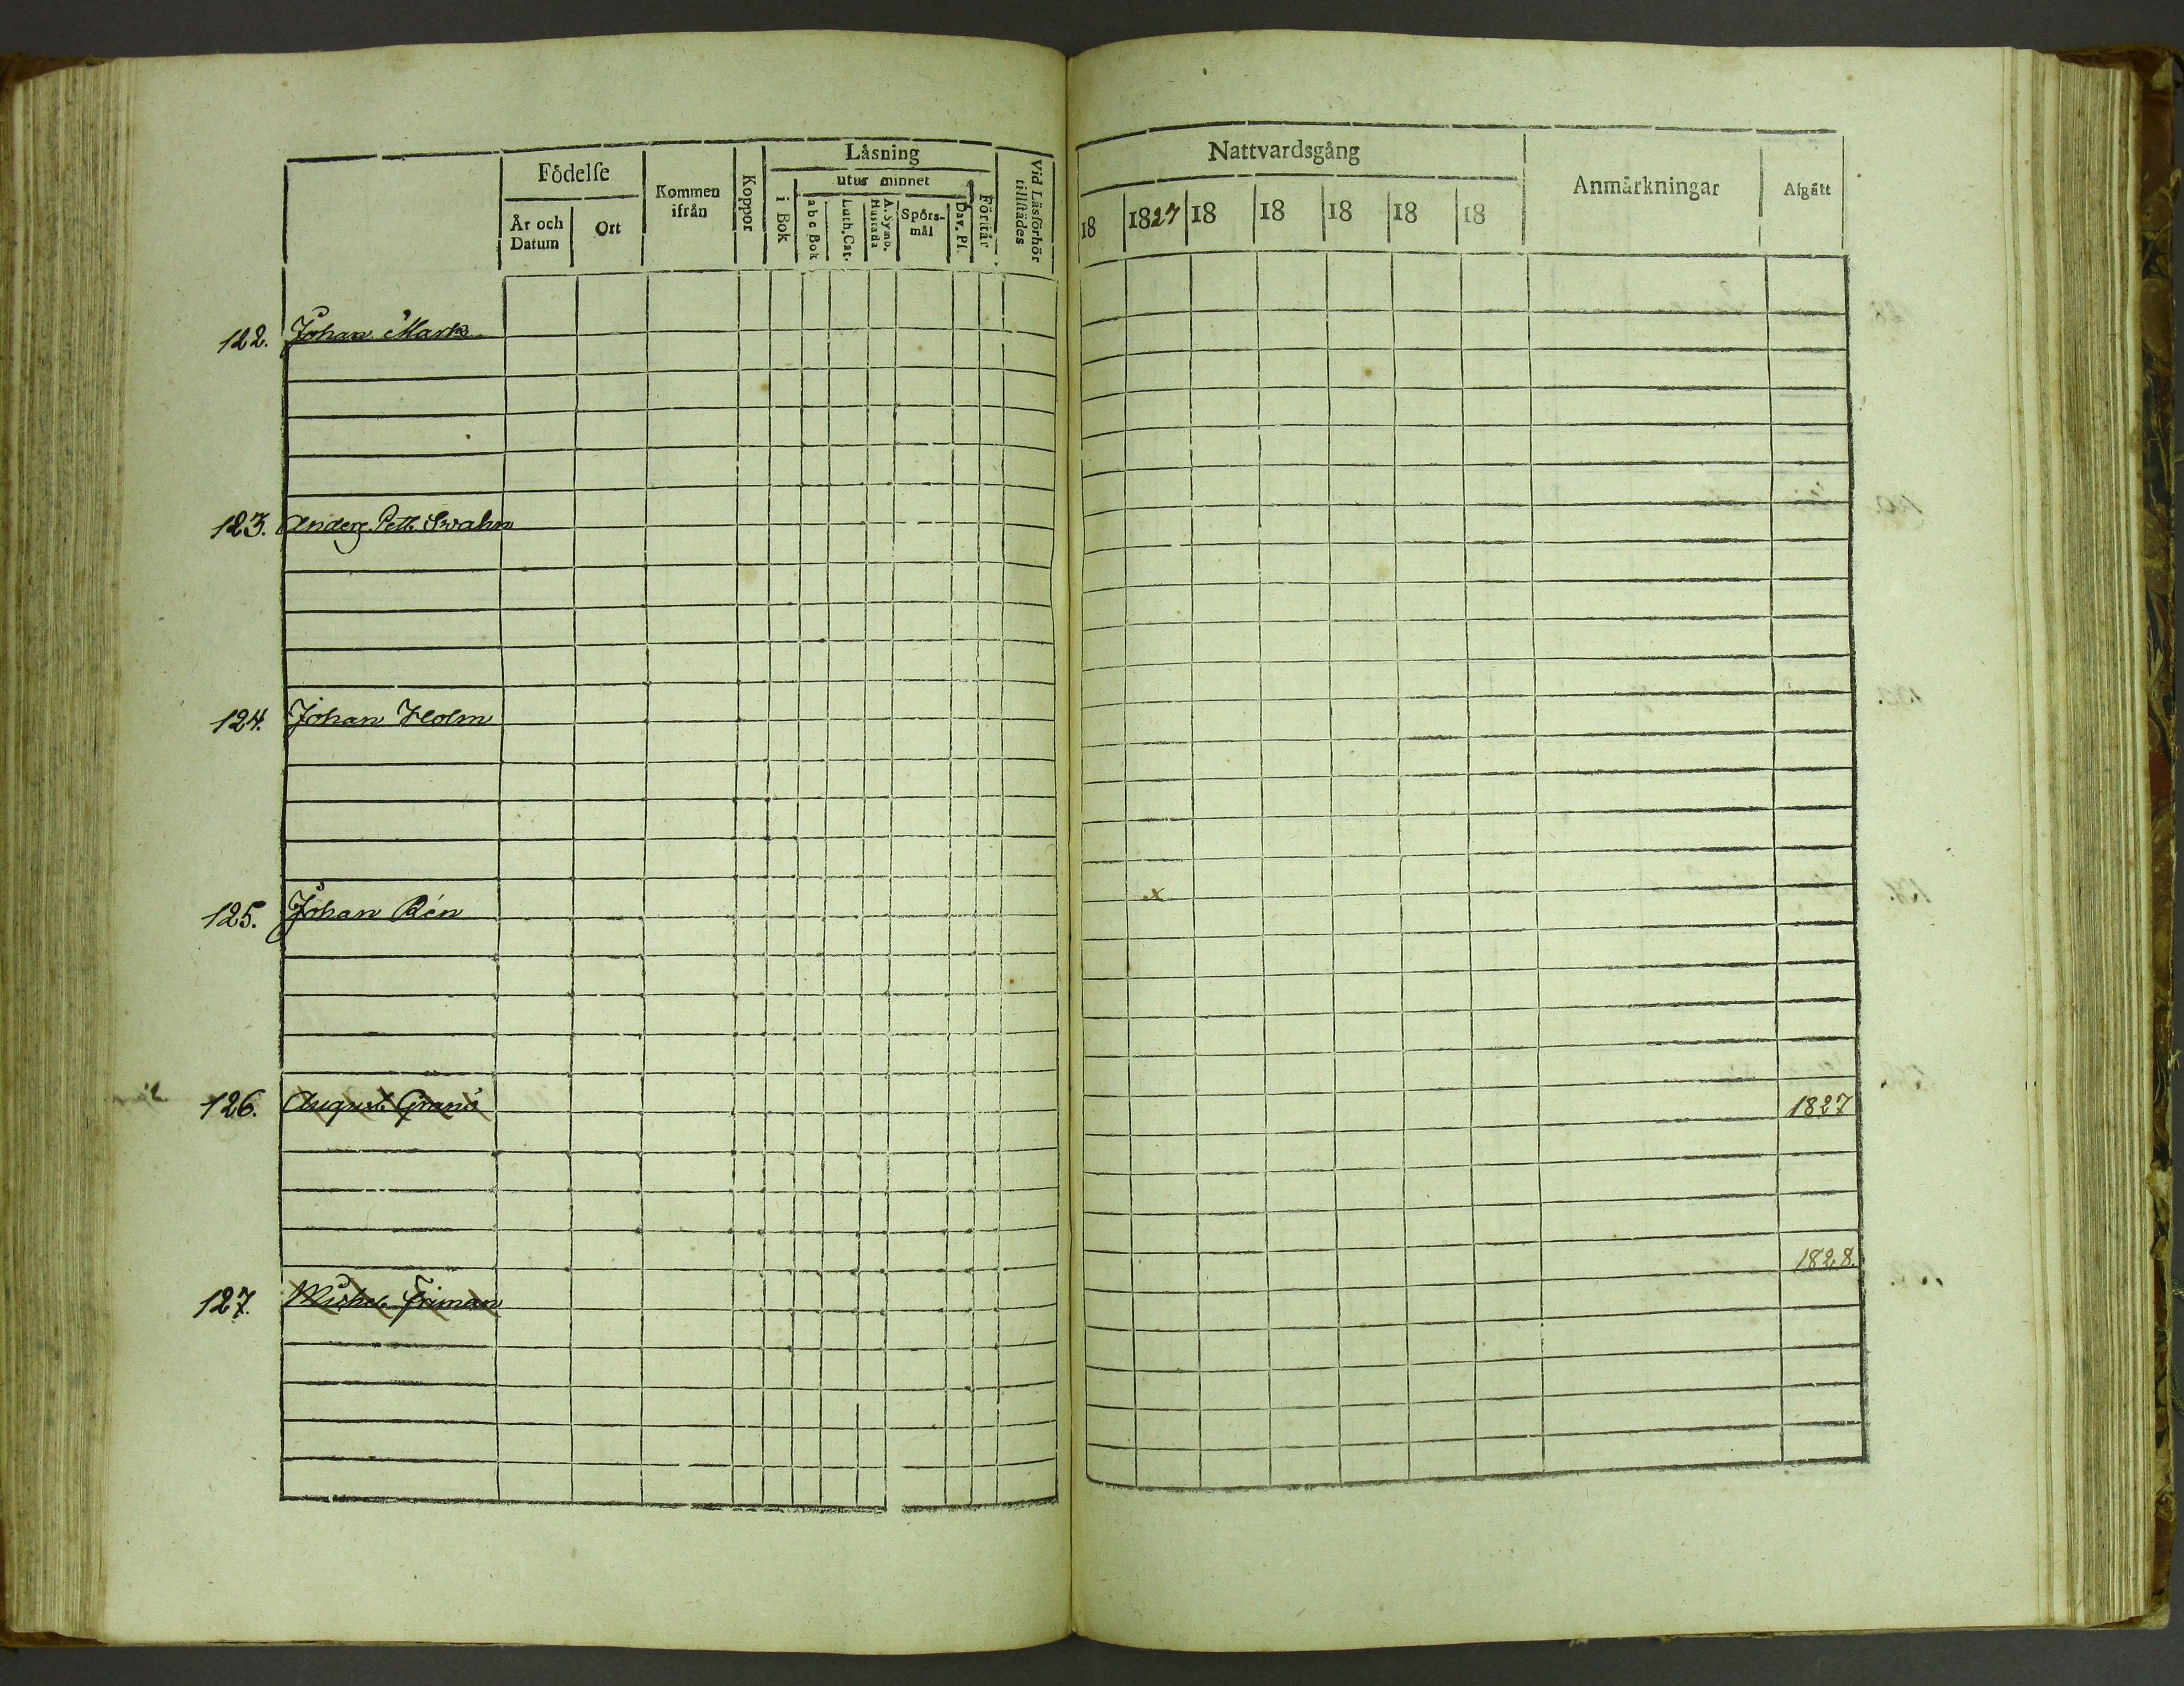 Födelſe
År och Datum
Ort
Kommen ifrån
Koppor
Läsning
i Bok
utur minnet
a b c Bok
Luth. Cat.
A. Symb. Hustafla
Spörs-mål
Dav. Pſ.
Förſtår
Vid Läsförhör tillſtädes
Nattvardsgång
18 1827 18 18 18 18 18
Anmärkningar
Afgått
122. Johan Mark
123. Anders Pett. Swahn
124. Johan Holm
125. Johan Rén x
126. August Granó 1827
1828.
127. Michel Friman